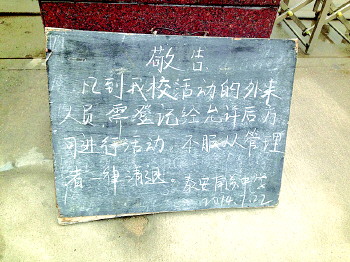 敬告
凡到我校活动的外来
人员,需登记经允许后方
可进行活动,不服从管理
者一律清退。泰安 中学
2014.9.22